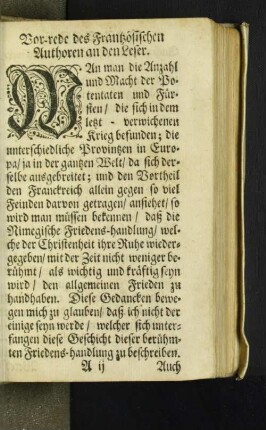 Vor-rede des Frantzösischen
Authoren an den Leser.
WAn man die Anzahl
und Macht der Po-
tentaten und Für-
sten/ die sich in dem
letzt-verwichenen
Krieg befunden; die
unterschiedliche Provintzen in Euro-
pa/ ja in der gantzen Welt/ da sich der-
selbe ausgebreitet; und den Vortheil
den Franckreich allein gegen so viel
Feinden darvon getragen/ ansiehet/ so
wird man müssen bekennen/ daß die
Nimegische Friedens-handlung/ wel-
che der Christenheit ihre Ruhe wieder-
gegeben/ mit der Zeit nicht weniger be-
rühmt/ als wichtig und kräftig seyn
wird/ den allgemeinen Frieden zu
handhaben. Diese Gedancken bewe-
gen mich zu glauben/ daß ich nicht der
einige seyn werde/ welcher sich unter-
fangen diese Geschicht dieser berühm-
ten Friedens-handlung zu beschreiben.
A ij Auch